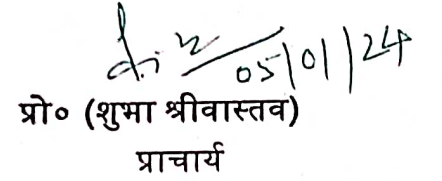 05/01/24
प्रो० (शुभा श्रीवास्तव)
प्राचार्य